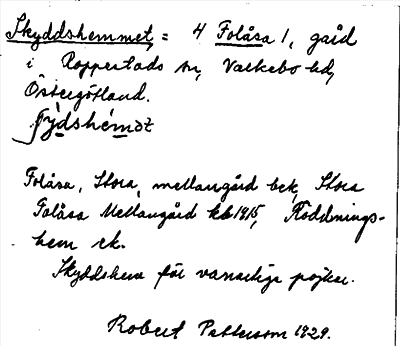 Skyddshemmet, = 4 Folåsa 1, gård
i Rappestads sn, Valkebo hd,
Östergötland.
Folåsa, Stora, mellangård bek, Stora
Folåsa Mellangård kb 1915, Räddnings-
hem ek.
Skyddshem för vanartiga pojkar.
Robert Petterson 1929.